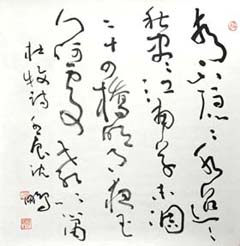 青山隱〻水迢〻
秋盡江南草未凋
二十四橋明月夜玉
人何處教吹簫
杜牧詩 沈鵬